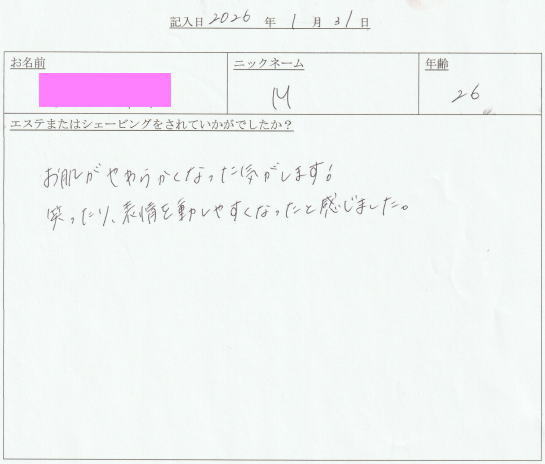 記入日 2026 年 1 月 31 日
お名前 ニックネーム 年齢
M 26
エステまたはシェービングをされていかがでしたか？
お肌がやわらかくなった気がします!
笑ったり、表情を動しやすくなったと感じました。